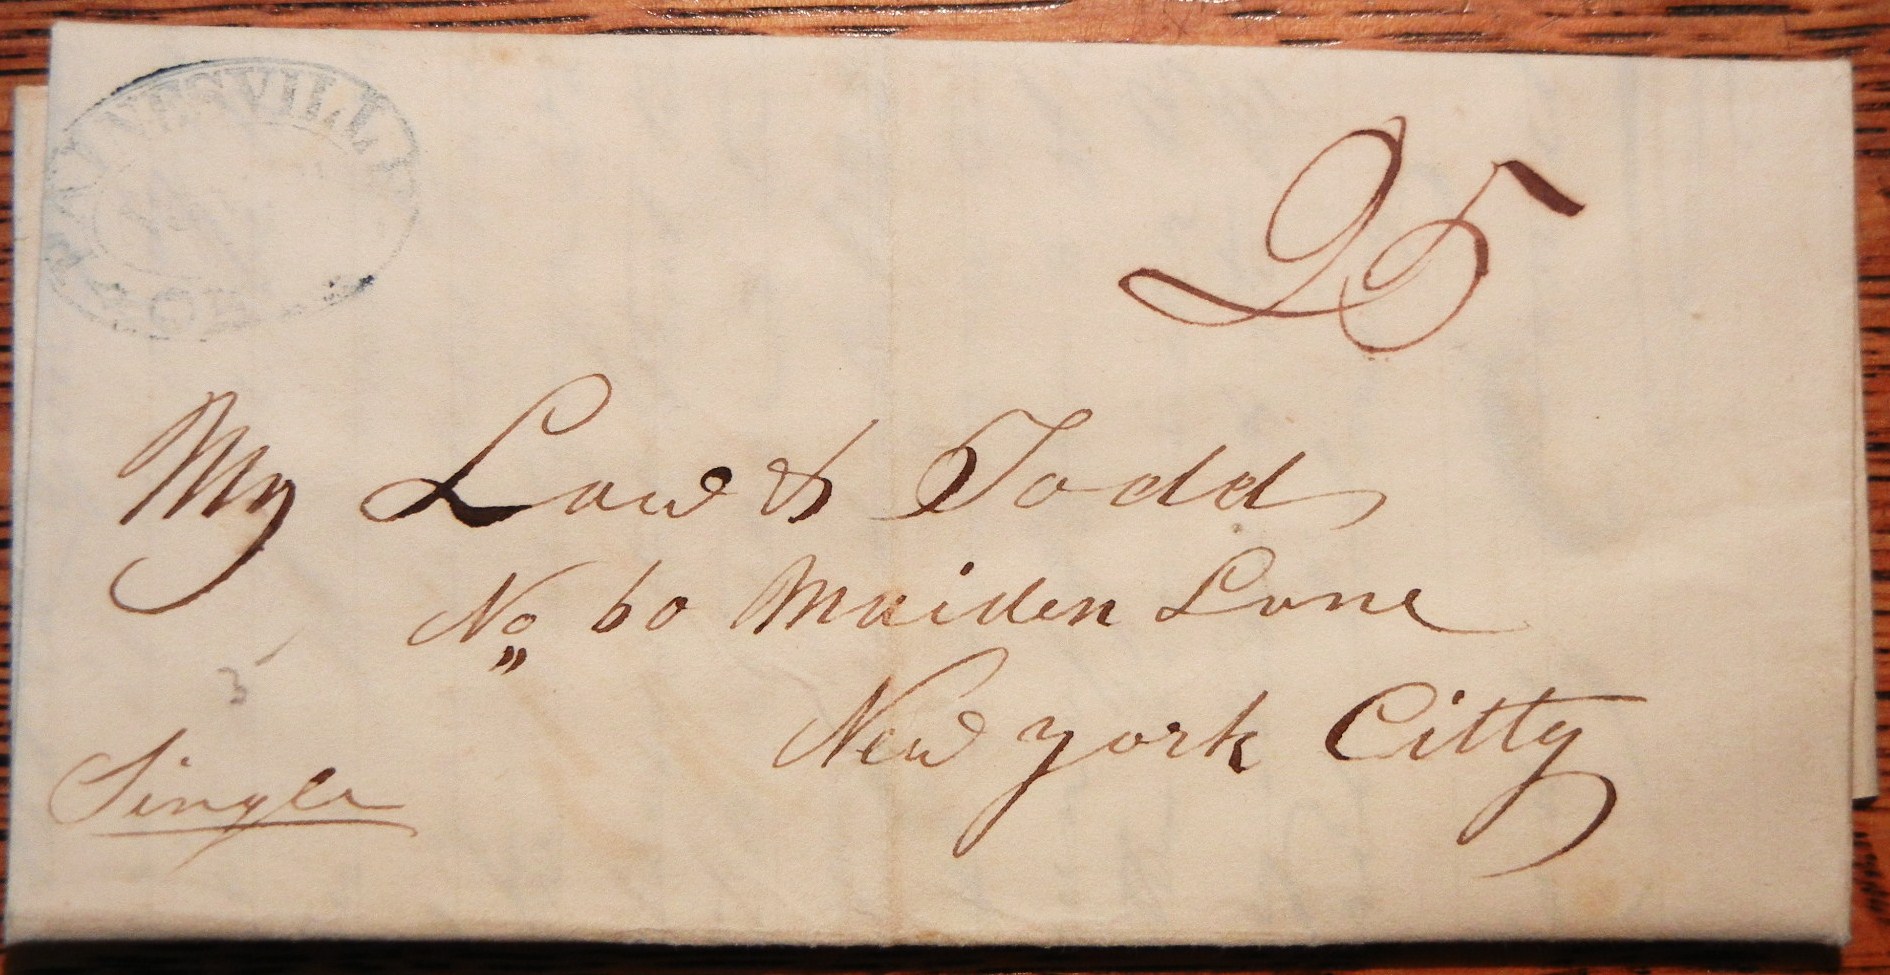 PAINESVILLE
OHIO
25
My Law & Todd
No 60 Maiden Lane
New york Citty
3
Single